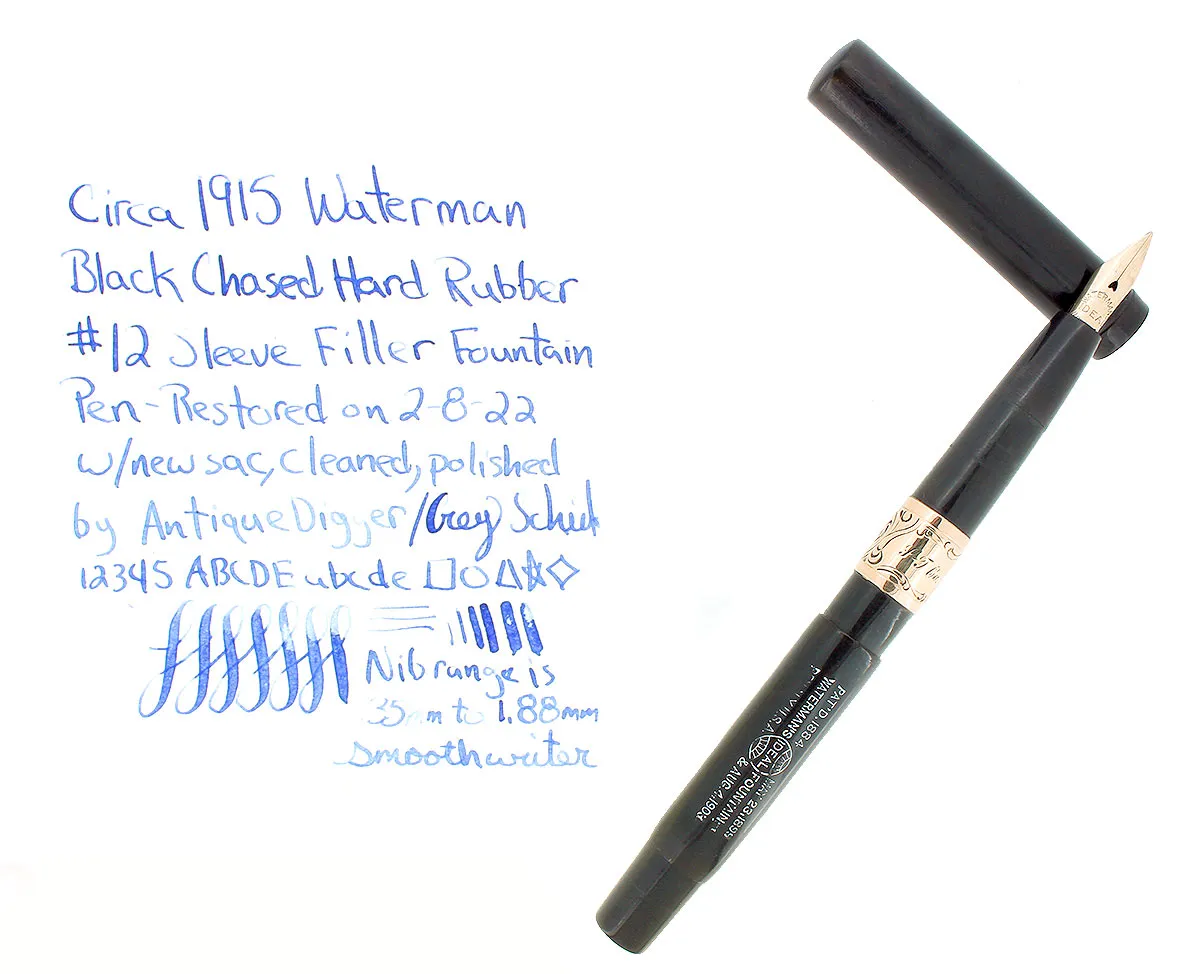 Circa 1915 Waterman
Black Chased Hard Rubber
#12 Sleeve Filler Fountain
Pen-Restored on 2-8-22
w/new sac, cleaned, polished
by AntiqueDigger/Grey
12345 ABCDE abcde
Nib range is
35mm to 1.88mm
smooth writer
IDEAL
PAT'D. 1884
MAY 23, 1899
WATERMAN'S IDEAL FOUNTAIN
U.S.A.
& AUG. 4, 1903